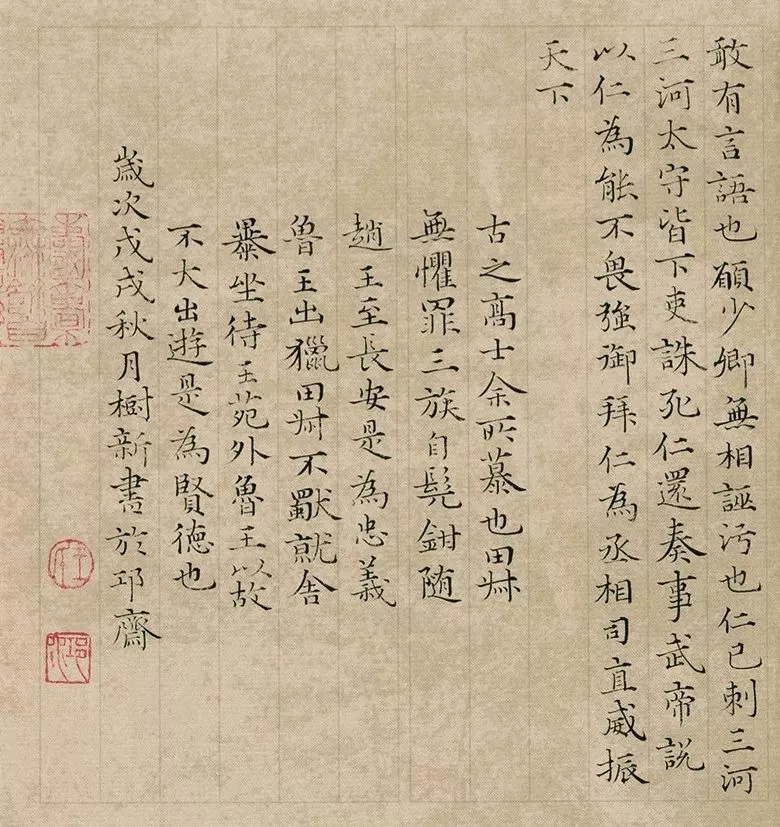 敢有言語也願少卿無相誣汙也仁已刺三河
三河太守皆下吏誅死仁還奏事武帝説
以仁為能不畏強御拜仁為丞相司直威振
天下
古之髙士余所慕也田叔
無懼罪三族自髡鉗随
趙王至長安是為忠義
魯王出獵田叔不厭就舍
暴坐待王苑外魯王以故
不大出遊是為賢德也
歲次戊戌秋月樹新書於邛齋